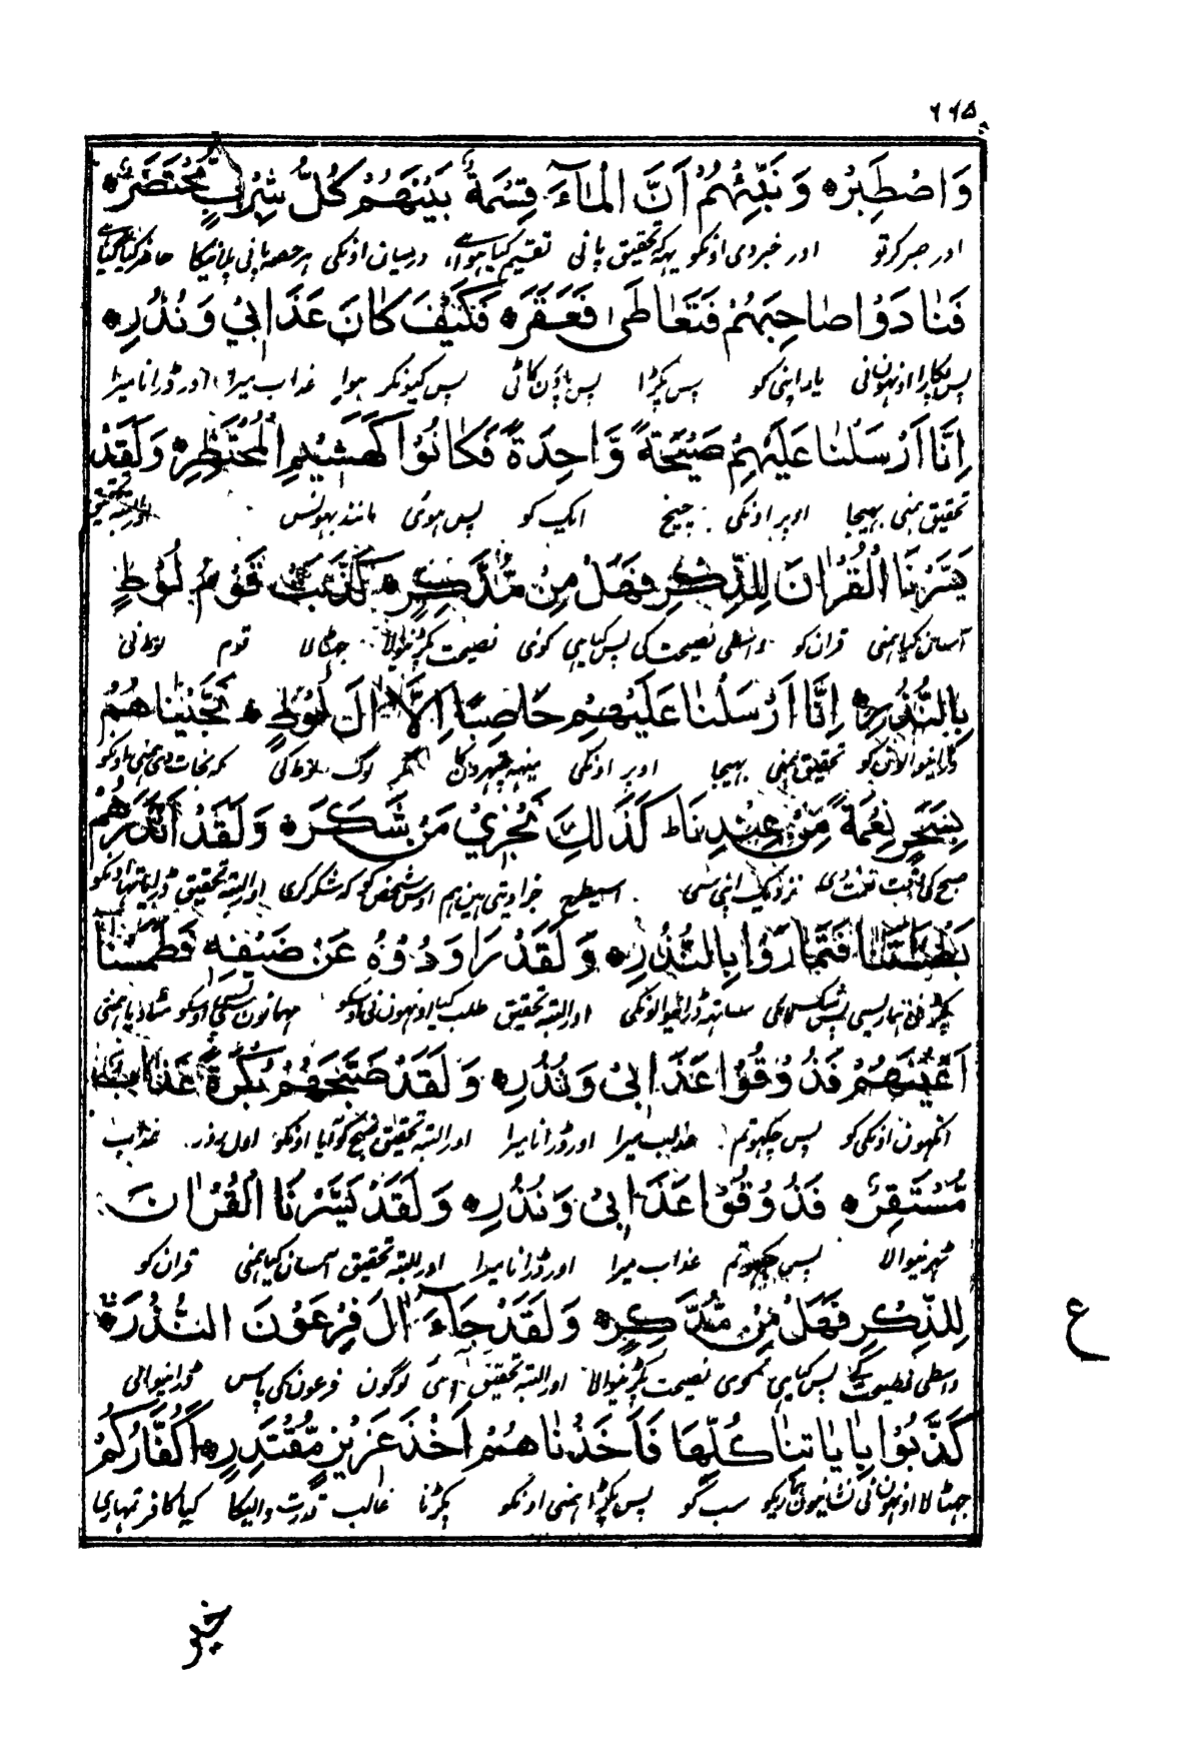 ٦٦۵
وَاصْطَبِرْ ۝ وَنَبِّئْهُمْ أَنَّ الْمَآءَ قِسْمَةٌ بَيْنَهُمْ كُلُّ شِرْبٍ مُّحْتَضَرٌ ۝
اور صبر کر تو اور خبر دی اونکو یہہ کہ تحقیق پانی تقسیم کیا ہوا ہے درمیان اونکی ہر حصہ پانی پلانیکا حاضر کیا گیا ہے
فَنَادَوْا صَاحِبَهُمْ فَتَعَاطَىٰ فَعَقَرَ ۝ فَكَيْفَ كَانَ عَذَابِيْ وَنُذُرِ ۝
پس پکارا اونہون نی یار اپنی کو پس پکڑا پس پاؤن کاٹی پس کیونکر ہوا عذاب میرا اور ڈرانا میرا
اِنَّا اَرْسَلْنَا عَلَيْهِمْ صَيْحَةً وَّاحِدَةً فَكَانُوْا كَهَشِيْمِ الْمُحْتَظِرِ ۝ وَلَقَدْ
تحقیق ہمنی بہیجا اوپر اونکی چیخ ایک کو پس ہوئی مانند بہونس اور البتہ تحقیق
يَسَّرْنَا الْقُرْاٰنَ لِلذِّكْرِ فَهَلْ مِنْ مُّدَّكِرٍ ۝ كَذَّبَتْ قَوْمُ لُوْطٍ
آسان کیا ہمنی قران کو واسطی نصیحت کی پس کیا ہی کوئی نصیحت پکڑنیوالا جہٹلایا قوم لوط نی
بِالنُّذُرِ ۝ اِنَّا اَرْسَلْنَا عَلَيْهِمْ حَاصِبًا اِلَّا اٰلَ لُوْطٍ ۝ نَجَّيْنَاهُمْ
ڈرانیوالون کو تحقیق ہمنی بہیجا اوپر اونکی مینہہ پتہرون کا مگر لوگ لوط کی کہ نجات دی ہمنی اونکو
بِسَحَرٍ نِعْمَةً مِّنْ عِنْدِنَا ط كَذٰلِكَ نَجْزِيْ مَنْ شَكَرَ ۝ وَلَقَدْ اَنْذَرَهُمْ
صبح کی وقت نعمت نزدیک اپنی سی اسیطرح جزا دیتی ہین ہم اوس شخص کو کہ شکر کری اور البتہ تحقیق ڈرایا تہا اونکو
بَطْشَتَنَا فَتَمَارَوْا بِالنُّذُرِ ۝ وَلَقَدْ رَاوَدُوْهُ عَنْ ضَيْفِهٖ فَطَمَسْنَا
پکڑنی ہماری سی پس شک لائی ساتہہ ڈرانیوالونکی اور البتہ تحقیق طلب کیا اونہون نی اوسکو مہمانون سی اوسکو مٹا دیا ہمنی
اَعْيُنَهُمْ فَذُوْقُوْا عَذَابِيْ وَنُذُرِ ۝ وَلَقَدْ صَبَّحَهُمْ بُكْرَةً عَذَابٌ
انکہون اونکی کو پس چکہو تم عذاب میرا اور ڈرانا میرا اور البتہ تحقیق صبح کو آیا اونکو اول روز عذاب
مُّسْتَقِرٌّ ۝ فَذُوْقُوْا عَذَابِيْ وَنُذُرِ ۝ وَلَقَدْ يَسَّرْنَا الْقُرْاٰنَ
ٹہرنیوالا پس چکہو تم عذاب میرا اور ڈرانا میرا اور البتہ تحقیق آسان کیا ہمنی قران کو
لِلذِّكْرِ فَهَلْ مِنْ مُّدَّكِرٍ ۝ وَلَقَدْ جَآءَ اٰلَ فِرْعَوْنَ النُّذُرُ ۝
ع
واسطی نصیحت کے پس کیا ہی کوئی نصیحت پکڑنیوالا اور البتہ تحقیق آئی لوگون فرعون کی پاس ڈرانیوالی
كَذَّبُوْا بِاٰيَاتِنَا كُلِّهَا فَاَخَذْنَاهُمْ اَخْذَ عَزِيْزٍ مُّقْتَدِرٍ ۝ اَكُفَّارُكُمْ
جہٹلایا اونہون نی نشانیون ہماریکو سب کو پس پکڑا ہمنی اونکو پکڑنا غالب قدرت والیکا کیا کافر تمہاری
خير